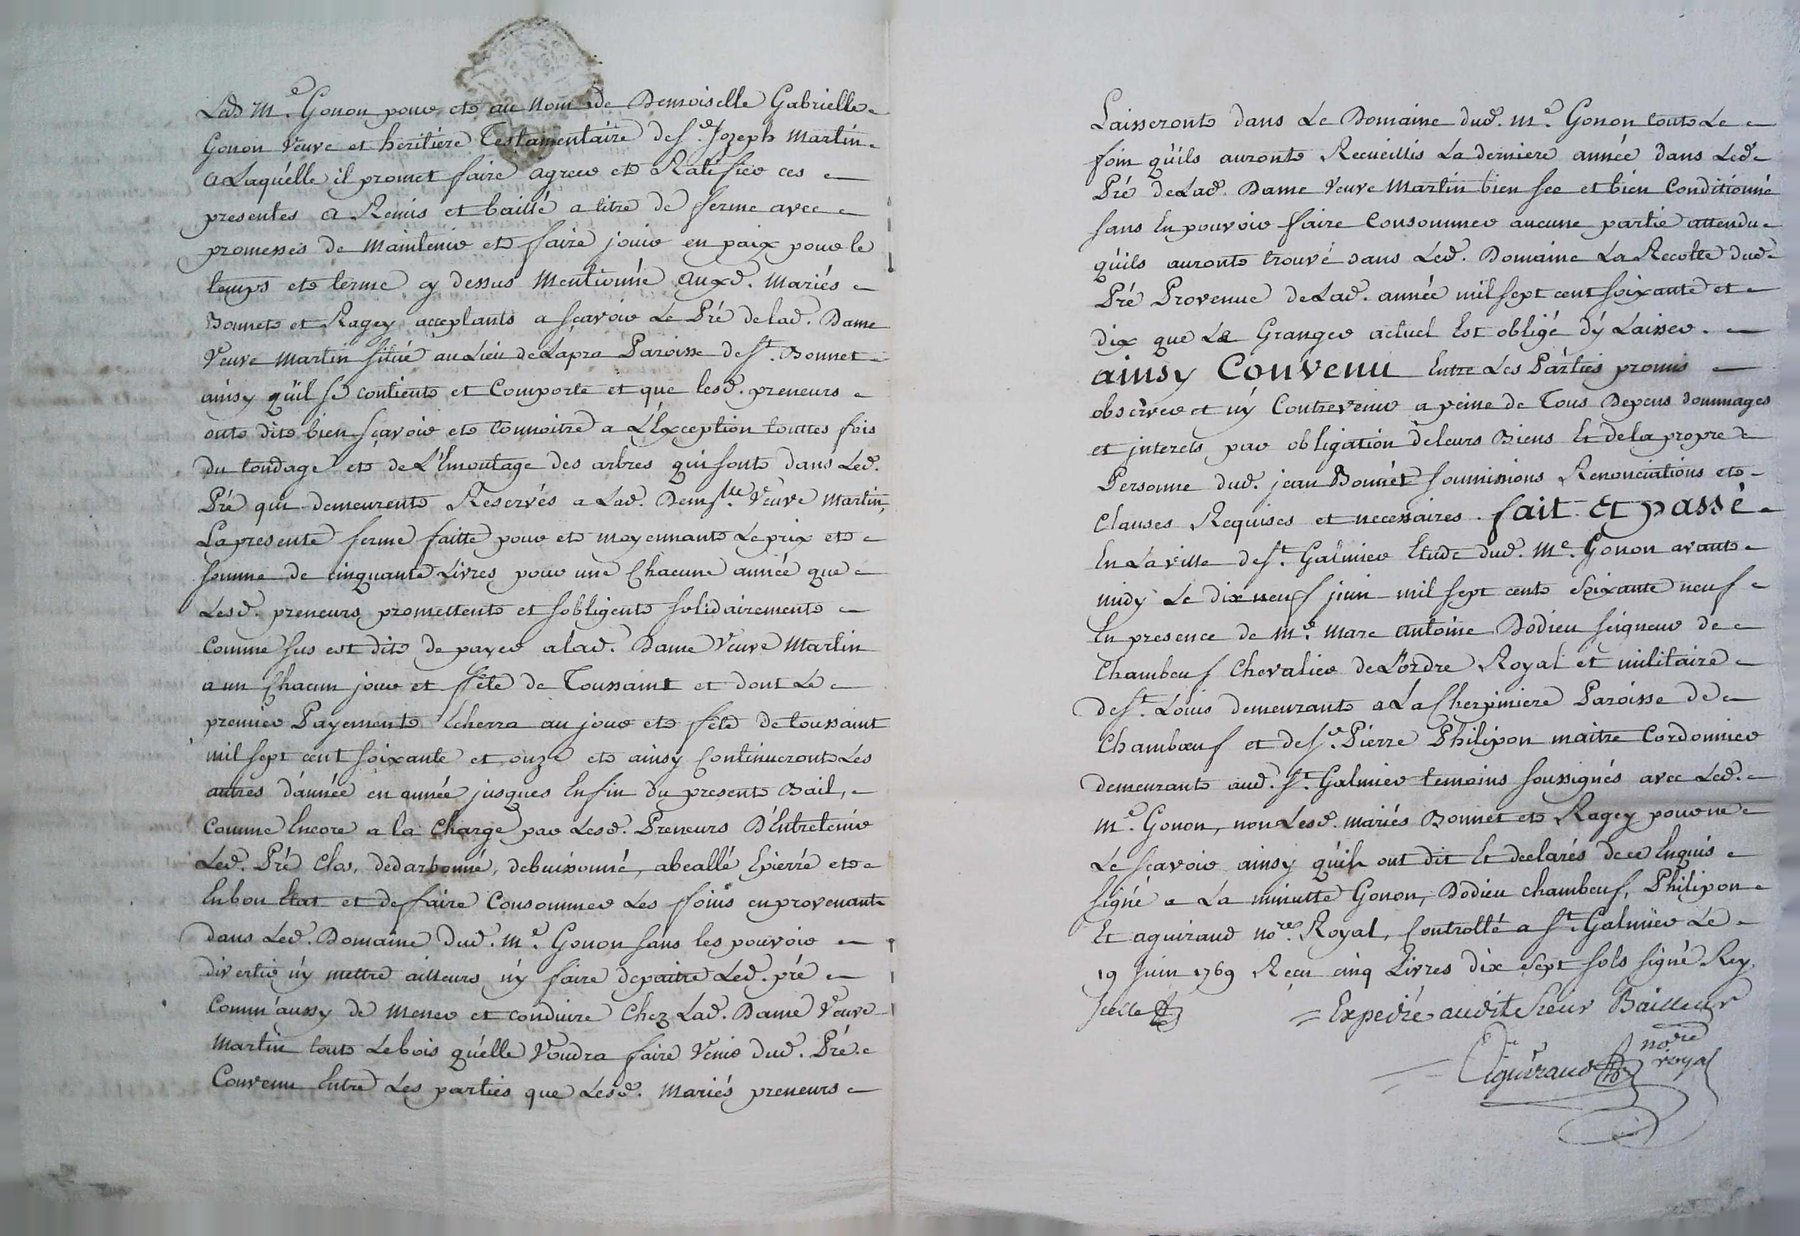 Led. Me. Gonon pour et au nom de Demoiselle Gabrielle
Gonon veuve et héritiere Testamentaire de Sr. Jozeph Martin
a Laquélle il promet faire agreer et Ratifier ces
presentes a Remis et baillé a titre de ferme avec
promesses de maintenir et faire jouir en paix pour le
temps et terme cy dessus mentionné auxd. mariés
Bonnet et Ragey acceptants a sçavoir Le Pré de lad. Dame
veuve Martin situé au Lieu de Lapra Paroisse de St. Bonnet
ainsy qu'il se contient et Comporte et que lesd. preneurs
ont dit bien sçavoir et connoitre a L'Exception touttes fois
du tondage et de L'Emoutage des arbres qui sont dans Led.
Pré qui demeurent Reservés a Lad. Demlle. veuve Martin,
La presente ferme faitte pour et moyennant Le prix et
somme de cinquante Livres pour une Chacune année que
Lesd. preneurs promettent et s'obligent solidairement
comme sus est dit de payer a lad. Dame veuve Martin
a un Chacun jour et féte de Toussaint et dont Le
premier Payement Echerra au jour et féte de toussaint
mil sept cent soixante et onze et ainsy Continueront Les
autres d'année en année jusques Enfin du present Bail,
comme Encore a la Charge par Lesd. Preneurs D'Entretenir
Led. Pré clos, dedarbonné, debuissonné, abeallé Epierré et
En bon Etat et de faire Consommer Les foins en provenant
dans Led. Domaine dud. Me. Gonon sans les pouvoir
divertir n'y mettre ailleurs n'y faire depaitre Led. pré
Comm'aussy de mener et conduire Chez Lad. Dame veuve
Martin tout Le bois qu'elle voudra faire venir dud. Pré.
Convenu Entre Les parties que Lesd. mariés preneurs
Laisseront dans Le Domaine dud. Me. Gonon tout Le
foin qu'ils auront Recueillis La derniere année dans Led.
Pré de Lad. Dame veuve Martin bien sec et bien Conditionné
sans En pouvoir faire Consommer aucune partie attendu
qu'ils auront trouvé dans Led. Domaine La Recolte dud.
Pré Provenue de Lad. année mil sept cent soixante et
dix que Le Granger actuel Est obligé d'y Laisser.
ainsy Convenu Entre Les Parties promis
observer et n'y Contrevenir a peine de Tous Depens dommages
et interets par obligation de leurs Biens Et de la propre
Personne dud. jean Bonnet soumissions Renonciations et
Clauses Requises et necessaires. fait Et passé
En La ville de St. Galmier Etude dud. Me. Gonon avant
midy Le dix neuf juin mil sept cent soixante neuf
En presence de Mre. Marc antoine Dodieu seigneur de
Chambeuf Chevalier de L'ordre Royal et militaire
de St. Louis demeurant a La Cherpiniere Paroisse de
Chambœuf et de Sr. Pierre Philipon maitre Cordonnier
demeurant aud. St. Galmier temoins soussignés avec Led.
Me. Gonon, non Lesd. mariés Bonnet et Ragey pour ne
Le sçavoir ainsy qu'ils ont dit Et declarés de ce Enquis
signé a La minutte Gonon, Dodieu chambeuf, Philipon
Et aguiraud nore. Royal, Controllé a St. Galmier Le
19 Juin 1769 Reçu cinq Livres dix sept sols signé Rey
Expedié audit sieur Bailleur
Aguiraud nore
royal